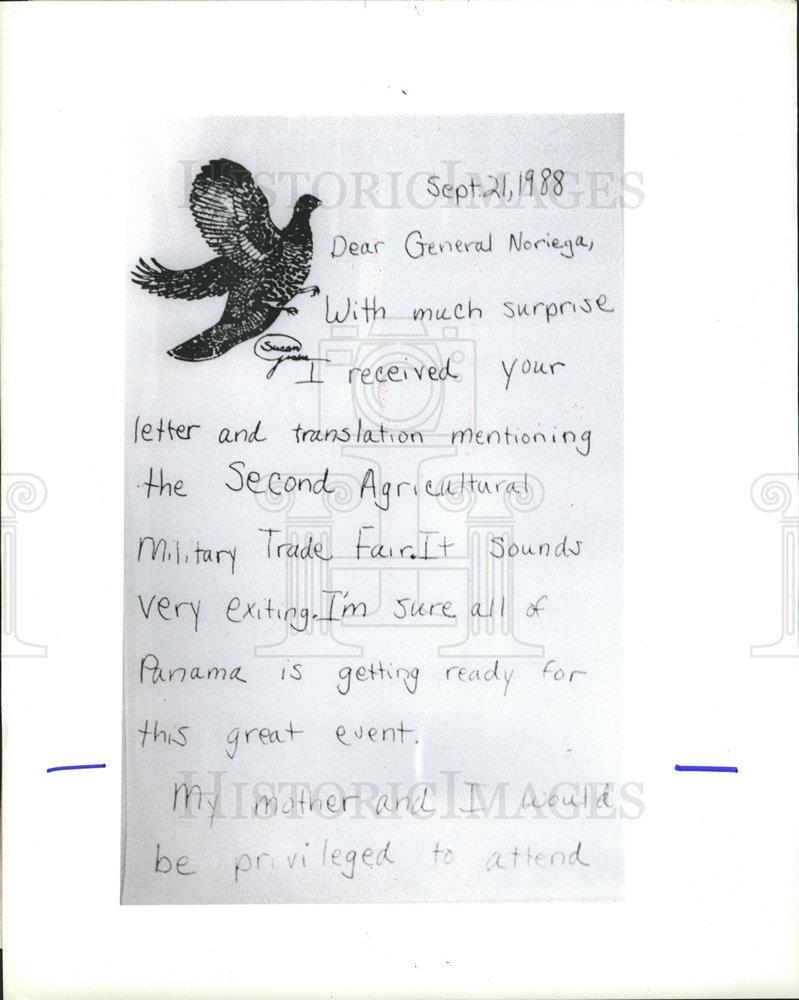 Sept. 21, 1988
Dear General Noriega,
With much surprise
Susan
I received your
letter and translation mentioning
the Second Agricultural
Military Trade Fair. It sounds
very exiting. I'm sure all of
Panama is getting ready for
this great event.
My mother and I would
be privileged to attend
HISTORIC IMAGES
HISTORIC IMAGES